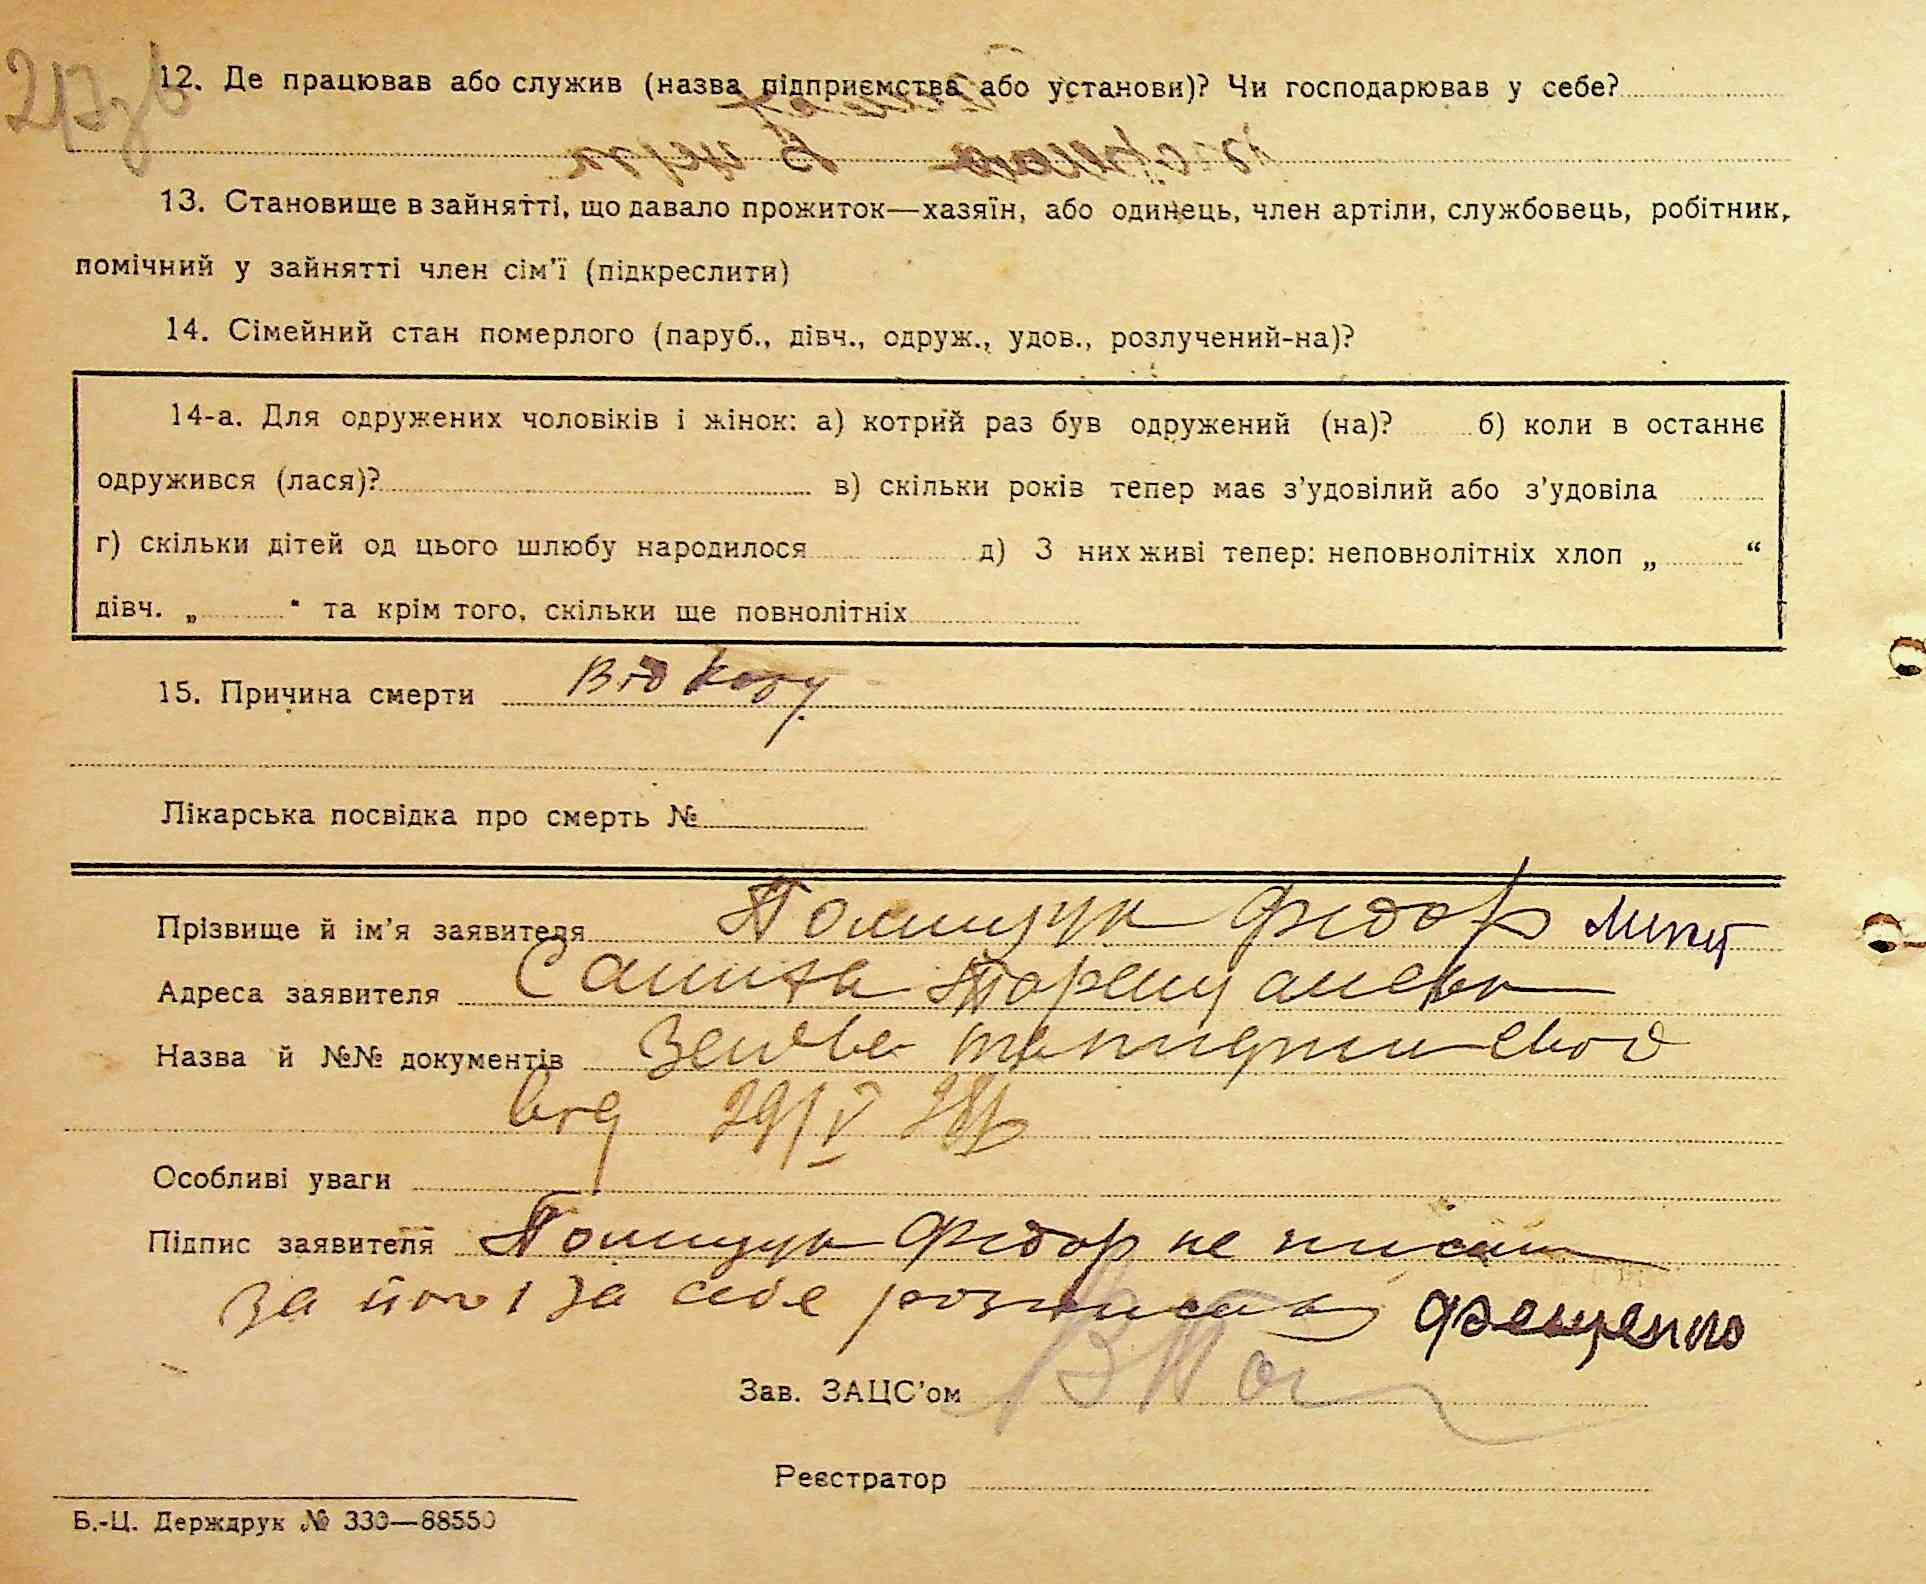 12. Де працював або служив (назва підприємства або установи)? Чи господарював у себе?
13. Становище в зайнятті, що давало прожиток—хазяїн, або одинець, член артіли, службовець, робітник,
помічний у зайнятті член сім'ї (підкреслити)
14. Сімейний стан померлого (паруб., дівч., одруж., удов., розлучений-на)?
14-а. Для одружених чоловіків і жінок: а) котрий раз був одружений (на)? б) коли в останнє
одружився (лася)? в) скільки років тепер має з'удовілий або з'удовіла
г) скільки дітей од цього шлюбу народилося д) З них живі тепер: неповнолітніх хлоп „ “
дівч. „ “ та крім того, скільки ще повнолітніх
15. Причина смерти Від кору
Лікарська посвідка про смерть №
Прізвище й ім'я заявителя Полищук Фідор
Адреса заявителя
Назва й №№ документів
від 29/V
Особливі уваги
Підпис заявителя Полищук Фідор не писм
за його і за себе розписавсь
Зав. ЗАЦС'ом
Реєстратор
Б.-Ц. Держдрук № 330—88550